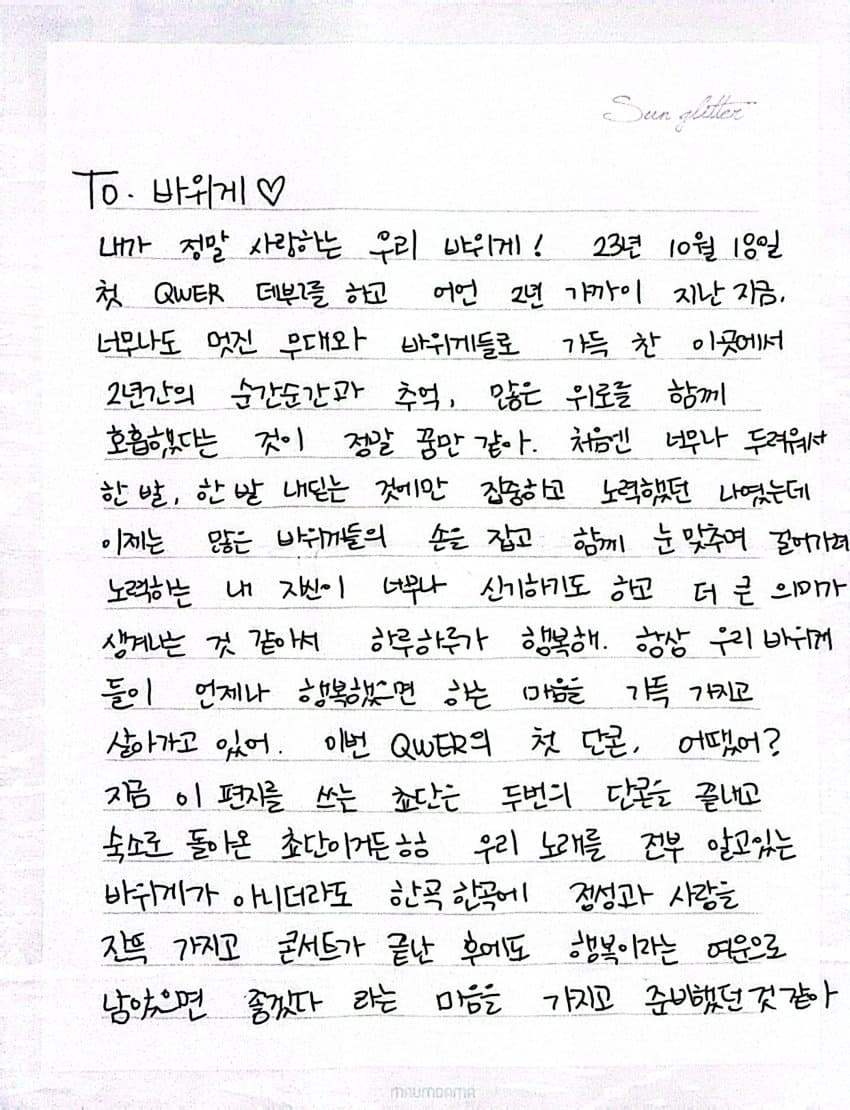 Sun glitter
To. 바위게♡
내가 정말 사랑하는 우리 바위게! 23년 10월 18일
첫 QWER 데뷔를 하고 어언 2년 가까이 지난 지금,
너무나도 멋진 무대와 바위게들로 가득 찬 이곳에서
2년간의 순간순간과 추억, 많은 위로를 함께
호흡했다는 것이 정말 꿈만 같아. 처음엔 너무나 두려워서
한 발, 한 발 내딛는 것에만 집중하고 노력했던 나였는데
이제는 많은 바위게들의 손을 잡고 함께 눈 맞추며 걸어가려
노력하는 내 자신이 너무나 신기하기도 하고 더 큰 의미가
생겨나는 것 같아서 하루하루가 행복해. 항상 우리 바위게
들이 언제나 행복했으면 하는 마음을 가득 가지고
살아가고 있어. 이번 QWER의 첫 단콘, 어땠어?
지금 이 편지를 쓰는 쵸단은 두번의 단콘을 끝내고
숙소로 돌아온 쵸단이거든ㅎㅎ 우리 노래를 전부 알고있는
바위게가 아니더라도 한곡 한곡에 정성과 사랑을
잔뜩 가지고 콘서트가 끝난 후에도 행복이라는 여운으로
남았으면 좋겠다 라는 마음을 가지고 준비했던 것 같아
MAUMDAMA